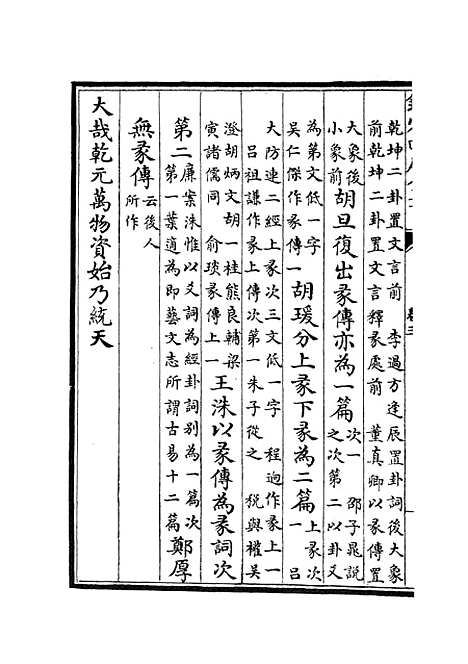 乾坤二卦置文言前 李過方逢辰置卦詞後大象
前乾坤二卦置文言釋彖處前 董真卿以彖傳置
大象後
小象前
胡旦復出彖傳亦為一篇
次一 邵子晁說
之次第二以卦爻
為第文低一字
吳仁傑作彖傳一
胡瑗分上彖下彖為二篇
上彖次
一 呂
大防連二經上彖次三文低一字 程迥作彖上一
呂祖謙作彖上傳次第一朱子從之 稅與權吳
澄胡炳文胡一桂熊良輔梁
寅諸儒同 俞琰彖傳上一
王洙以彖傳為彖詞次
第二
廉案洙惟以爻詞為經卦詞別為一篇次
第一葉適為即藝文志所謂古易十二篇
鄭厚
無彖傳
云後人
所作
大哉乾元萬物資始乃統天